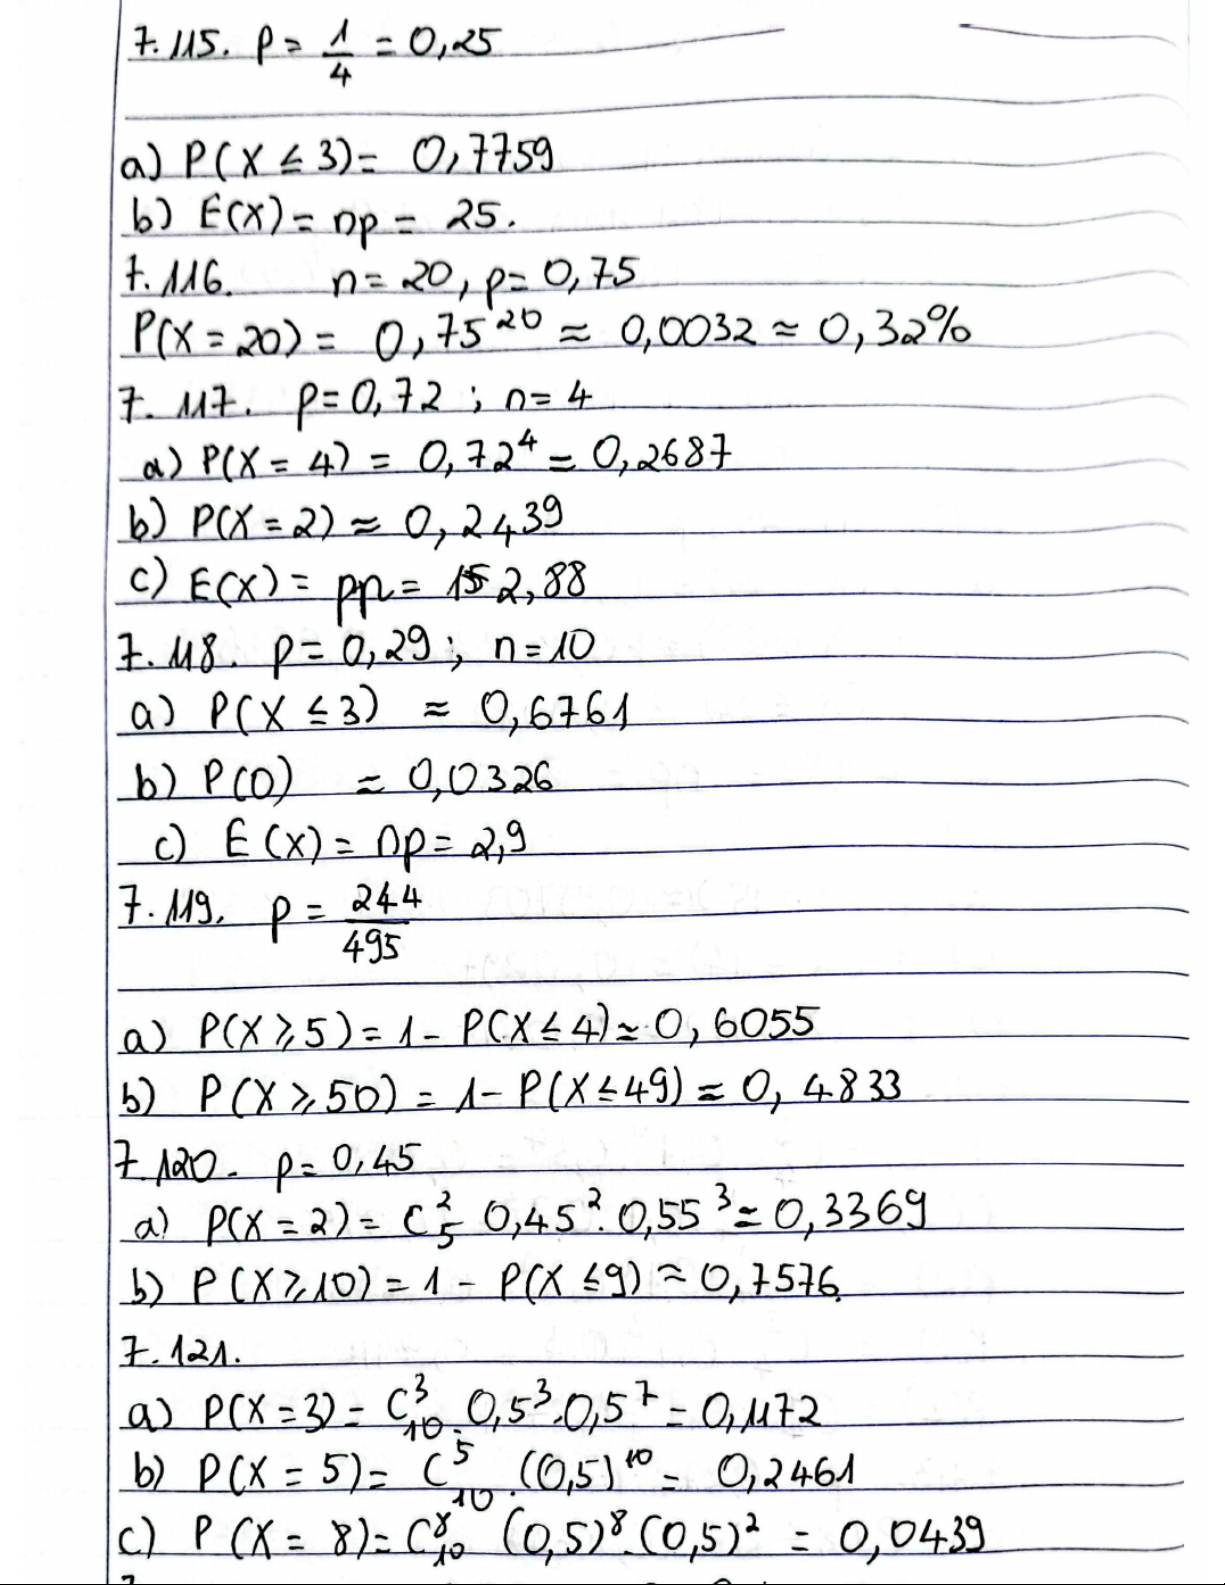 7.115. p = 1/4 = 0,25
a) P(X ≤ 3) = 0,7759
b) E(X) = np = 25.
7.116. n = 20, p = 0,75
P(X = 20) = 0,75^20 ≈ 0,0032 ≈ 0,32%
7.117. p = 0,72 ; n = 4
a) P(X = 4) = 0,72^4 = 0,2687
b) P(X = 2) ≈ 0,2439
c) E(X) = pn = 2,88
7.118. p = 0,29 ; n = 10
a) P(X ≤ 3) ≈ 0,6761
b) P(0) ≈ 0,0326
c) E(X) = np = 2,9
7.119. p = 244/495
a) P(X ≥ 5) = 1 - P(X ≤ 4) ≃ 0,6055
b) P(X ≥ 50) = 1 - P(X ≤ 49) ≈ 0,4833
7.120. p = 0,45
a) P(X = 2) = C_5^2 0,45^2 . 0,55^3 ≃ 0,3369
b) P(X ≥ 10) = 1 - P(X ≤ 9) ≈ 0,7576.
7.121.
a) P(X = 3) = C_10^3 . 0,5^3 . 0,5^7 = 0,1172
b) P(X = 5) = C_10^5 . (0,5)^10 = 0,2461
c) P(X = 8) = C_10^8 (0,5)^8 . (0,5)^2 = 0,0439